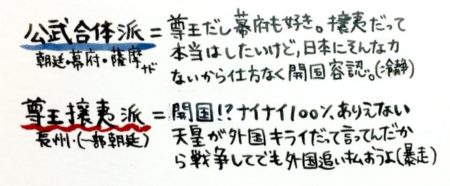 公武合体派 = 尊王だし幕府も好き。攘夷だって
朝廷・幕府・薩摩など 本当はしたいけど、日本にそんな力
ないから仕方なく開国容認。(冷静)
尊王攘夷派 = 開国!?ナイナイ100%、ありえない
長州・(一部朝廷) 天皇が外国キライだって言ってんだか
ら戦争してでも外国追い払おうよ(暴走)